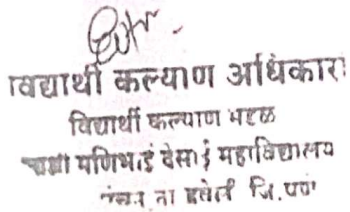 विद्यार्थी कल्याण अधिकारी
विद्यार्थी कल्याण मंडळ
मणिभाई देसाई महाविद्यालय
ता हवेली जि. पुणे